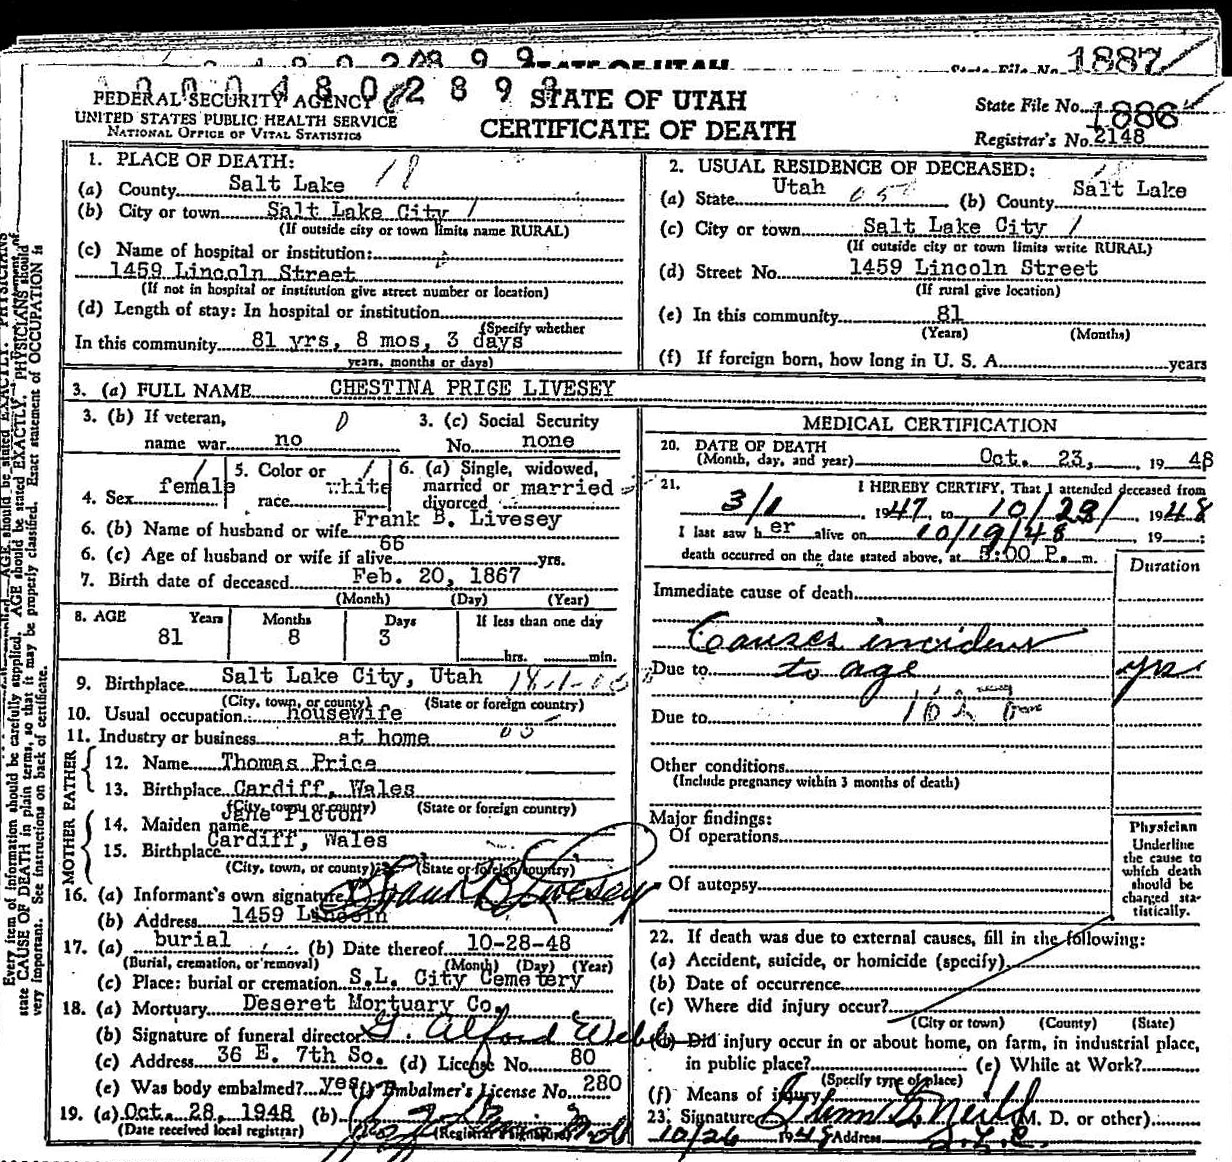 1887
STATE OF UTAH
State File No.
0 0 0 4 8 0 2 8 9 9
FEDERAL SECURITY AGENCY
UNITED STATES PUBLIC HEALTH SERVICE
NATIONAL OFFICE OF VITAL STATISTICS
STATE OF UTAH
CERTIFICATE OF DEATH
State File No. 1886
Registrar's No. 2148
1. PLACE OF DEATH:
(a) County Salt Lake 18
(b) City or town Salt Lake City 1
(If outside city or town limits name RURAL)
(c) Name of hospital or institution:
1459 Lincoln Street
(If not in hospital or institution give street number or location)
(d) Length of stay: In hospital or institution
(Specify whether
In this community 81 yrs, 8 mos, 3 days
years, months or days)
2. USUAL RESIDENCE OF DECEASED:
(a) State Utah (b) County Salt Lake
(c) City or town Salt Lake City 1
(If outside city or town limits write RURAL)
(d) Street No. 1459 Lincoln Street
(If rural give location)
(e) In this community 81
(Years) (Months)
(f) If foreign born, how long in U. S. A. years
3. (a) FULL NAME CHESTINA PRIGE LIVESEY
3. (b) If veteran, 0 3. (c) Social Security
name war no No. none
4. Sex female 5. Color or race white 6. (a) Single, widowed, married or divorced married
6. (b) Name of husband or wife Frank B. Livesey
6. (c) Age of husband or wife if alive 66 yrs.
7. Birth date of deceased Feb. 20, 1867
(Month) (Day) (Year)
8. AGE Years Months Days If less than one day
81 8 3 hrs. min.
9. Birthplace Salt Lake City, Utah
(City, town, or county) (State or foreign country)
10. Usual occupation: housewife
11. Industry or business at home
FATHER
12. Name Thomas Price
13. Birthplace Cardiff, Wales
(City, town, or county) (State or foreign country)
MOTHER
14. Maiden name Jane Picton
15. Birthplace Cardiff, Wales
(City, town, or county) (State or foreign country)
16. (a) Informant's own signature Frank B Livesey
(b) Address 1459 Lincoln
17. (a) burial (b) Date thereof 10-28-48
(Burial, cremation, or removal) (Month) (Day) (Year)
(c) Place: burial or cremation S.L. City Cemetery
18. (a) Mortuary Deseret Mortuary Co.
(b) Signature of funeral director G. Alford Webb
(c) Address 36 E. 7th So. (d) License No. 80
(e) Was body embalmed? yes (f) Embalmer's License No. 280
19. (a) Oct. 28, 1948 (b)
(Date received local registrar) (Registrar's signature)
MEDICAL CERTIFICATION
20. DATE OF DEATH
(Month, day, and year) Oct. 23, 1948
21. I HEREBY CERTIFY, That I attended deceased from
3/1, 1947, to 10/23/ 1948
I last saw her alive on 10/19/48 19 ;
death occurred on the date stated above, at 5:00 P. m.
Duration
Immediate cause of death
Causes incident
Due to to age yrs
Due to
Other conditions
(Include pregnancy within 3 months of death)
Major findings:
Of operations
Of autopsy
Physician
Underline
the cause to
which death
should be
charged sta-
tistically.
22. If death was due to external causes, fill in the following:
(a) Accident, suicide, or homicide (specify)
(b) Date of occurrence
(c) Where did injury occur?
(City or town) (County) (State)
(d) Did injury occur in or about home, on farm, in industrial place,
in public place? (e) While at Work?
(Specify type of place)
(f) Means of injury
23. Signature (M. D. or other)
10/26 1948 Address S.L.C.
Every item of information should be carefully supplied. AGE should be stated EXACTLY. PHYSICIANS should
state CAUSE OF DEATH in plain terms, so that it may be properly classified. Exact statement of OCCUPATION is
very important. See instructions on back of certificate.